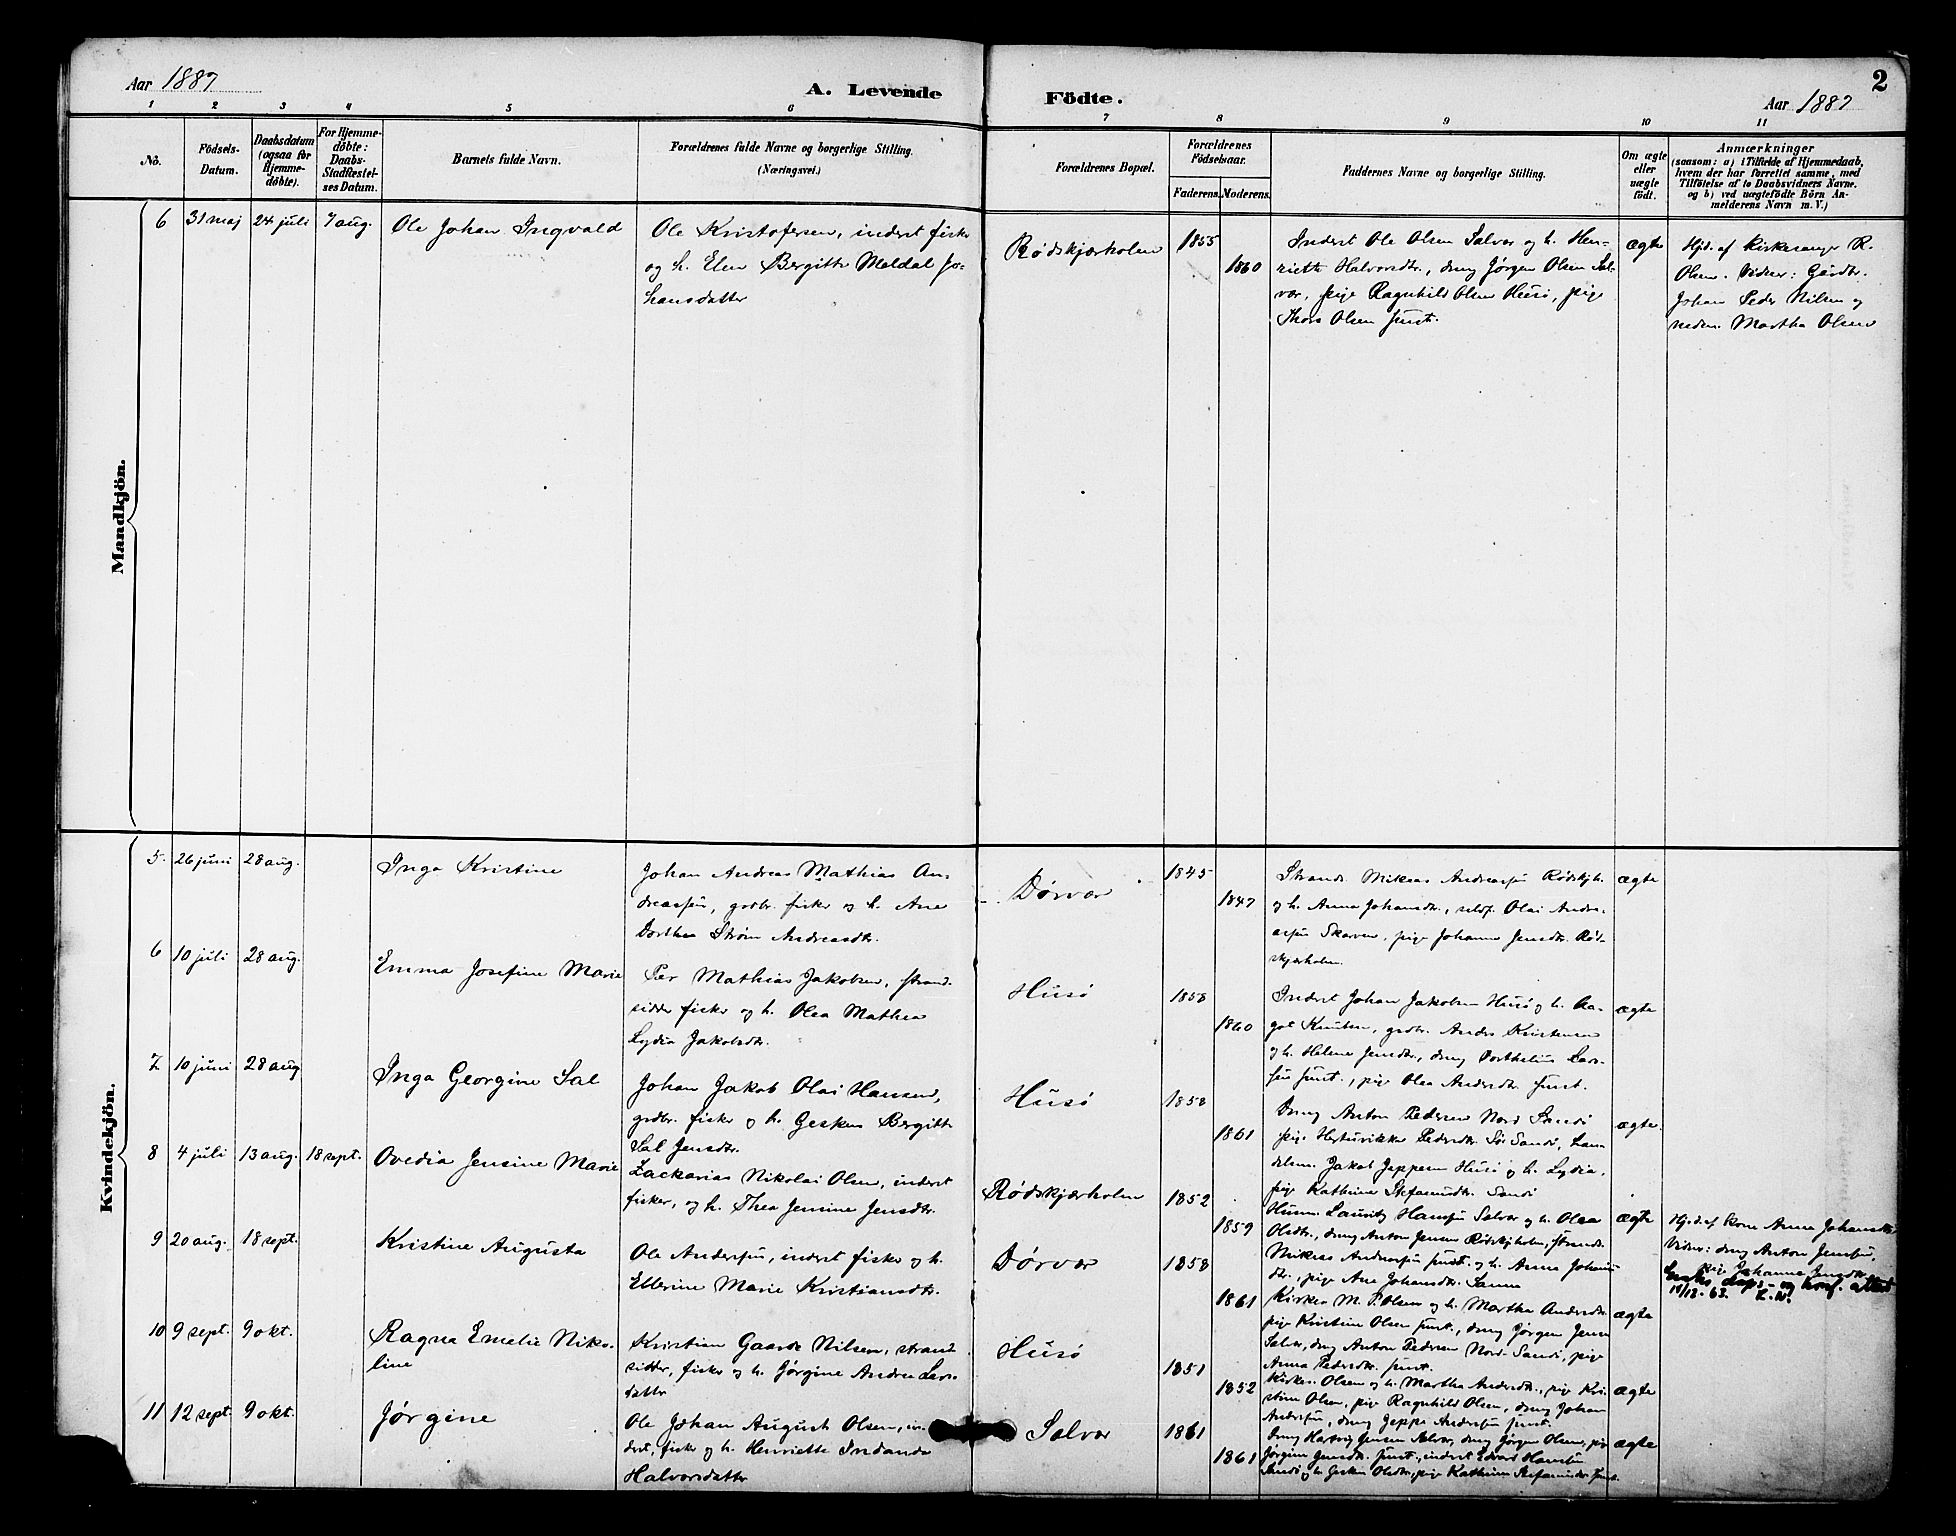 Aar 1887
A. Levende
Födte.
Aar 1887
2
1 2 3 4 5 6 7 8 9 10 11
No.
Födsels-
Datum.
Daabsdatum
(ogsaa for
Hjemme-
döbte).
For Hjemme-
döbte:
Daabs-
Stadfæstel-
ses Datum.
Barnets fulde Navn.
Forældrenes fulde Navne og borgerlige Stilling.
(Næringsvei.)
Forældrenes Bopæl.
Forældrenes
Födselsaar.
Faderens.
Moderens.
Faddernes Navne og borgerlige Stilling.
Om ægte
eller
uægte
födt.
Anmærkninger
(saasom: a) i Tilfælde af Hjemmedaab,
hvem der har forrettet samme, med
Tilföielse af to Daabsvidners Navne.
og b) ved uægtefödte Börn An-
melderens Navn m. V.)
Mandkjön.
6 31 maj 24 juli 7 aug.
Ole Johan Ingvald
Ole Kristofersen, inderst fisker
og h. Elen Bergitte Meldal Jo-
hansdatter
Rødskjærholm
1855
1860
Inderst Ole Olsen Salvær og h. Hen-
riette Halvorsdtr., dreng Jørgen Olsen Sal-
vær, pige Ragnhild Olsen Husö, pige
Thora Olsen smst.
ægte
Hjd. af Kirkesanger R.
Olsen. Vidner: Gårdbr.
Johan Peder Nilsen og
Martha Olsen
Kvindekjön.
5. 26 juni 28 aug.
Inga Kristine
Johan Andreas Mathias An-
dreassen, grdbr. fisker og h. Ane
Dorthea Strøm Andreasdtr.
Dørvær
1845
1847
Strands. Mikias Andreassen Rødskjh.
og h. Anna Johansdtr., Olai Andre-
assen Skarven, pige Johanna Jensdtr. Rød-
skjærholm.
ægte
6 10 juli 28 aug.
Emma Josefine Marie
Per Mathias Jakobsen, strand-
sidder fisker og h. Olea Mathea
Lydia Jakobsdtr.
Husö
1858
1860
Inderst Johan Jakobsen Husö og h. Aa-
got Knutsen, grdbr. Anders Kristensen
og h. Helene Jensdtr., dreng Dorthelius Lars-
sen smst., pige Olea Andersdtr. smst.
ægte
7 10 juni 28 aug
Inga Georgine Sal
Johan Jakob Olai Hansen,
grdbr. fisker og h. Gesken Bergitte
Sal Jensdtr.
Husö
1858
1861
Dreng Anton Pedersen Nord Sandö
pige Pedersdtr. Sör Sandö, Lan-
delsm. Jakob Jeppesen Husö og h. Lydia,
pige Kathrine Stefanusdtr. Sandö
ægte.
8 4 juli 13 aug. 18 sept.
Ovedia Jensine Marie
Zackarias Nikolai Olsen, inderst
fisker, og h. Thea Jensine Jensdtr.
Rødskjærholm
1852
1859
Husm. Lauritz Hanssen Salvær og h. Olea
Olsdtr., dreng Anton Jensen Rødskjholm, strands.
Mikias Andreassen smst. og h. Anna Johans
dtr., pige Ane Johansdtr. Sanna
ægte
Hjd. af Kone Anna Johansdtr.
Vidner: dreng Anton Jenssen,
pige Johanna Jensdtr.
9 20 aug. 18 sept.
Kristine Augusta
Ole Anderssen, inderst fisker og h.
Ellerine Marie Kristiansdtr.
Dørvær
1858
1861
Kirkes. M. P. Olsen og h. Martha Andersdtr.
pige Kristine Olsen smst., dreng Jørgen Jensen
Salvær, dreng Anton Pedersen Nord-Sandö, pige
Anna Pedersdtr. smst.
ægte
daps- og konf. attest
18/12-63. L.N.
10 9 sept. 9 okt.
Ragna Emelie Niko-
line
Kristian Gaarde Nilsen, strand
sidder, fisker og h. Jørgine Andrea Lars-
datter
Husö
1851
1852
Kirkes. Olsen og h. Martha Andersdtr., pige Kri-
stine Olsen, pige Ragnhild Olsen, dreng Johan
Anderssen, dreng Jeppe Anderssen smst.
ægte
11 12 sept. 9 okt.
Jørgine
Ole Johan August Olsen, in-
derst, fisker og h. Henriette Indianda
Halvorsdatter
Salvær
1861
1861
Dreng Hartvig Jensen Salvær, dreng Jørgen Olsen, pige
Jørgine Jensdtr. smst., inderst Edvard Hanssen
Sandö og h. Gesken Olsdtr., pige Kathrine Stefanusdtr. smst.
ægte